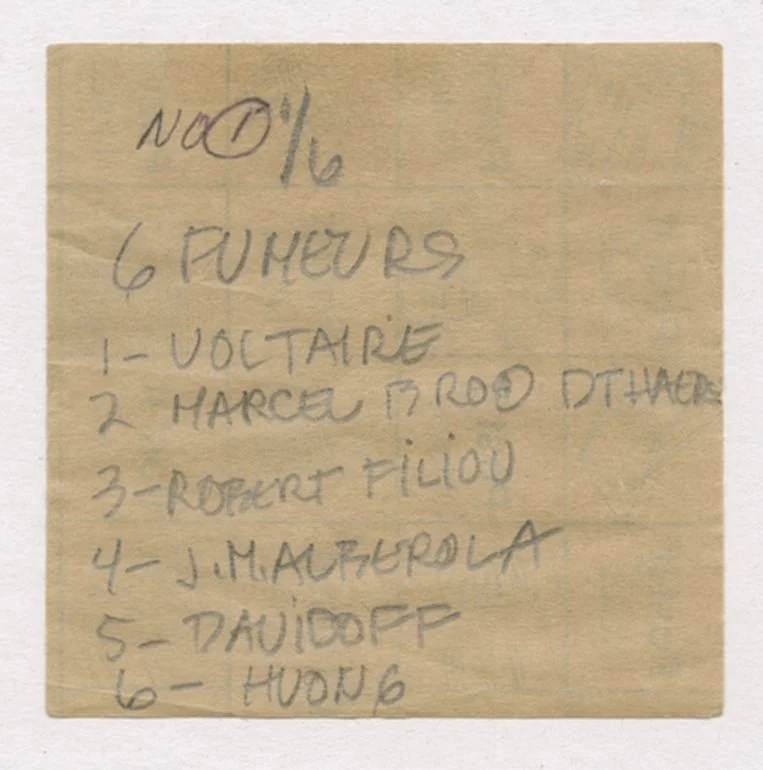 NO ① 1/6
6 FUMEURS
1- VOLTAIRE
2 MARCEL BROO DTHAERS
3-ROBERT FILIOU
4- J.M.ALBEROLA
5- DAViDOFF
6- HUONG